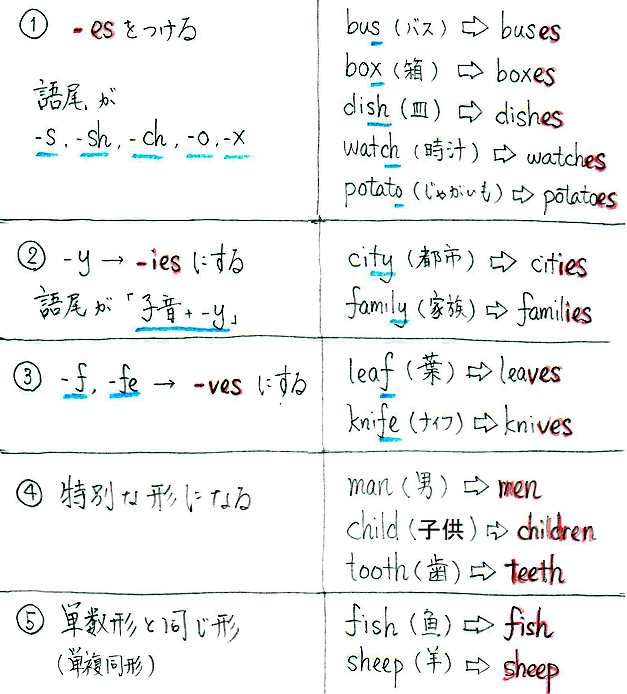 ① -es をつける
語尾が
-s, -sh, -ch, -o, -x
bus (バス) ⇨ buses
box (箱) ⇨ boxes
dish (皿) ⇨ dishes
watch (時汁) ⇨ watches
potato (じゃがいも) ⇨ potatoes
② -y → -ies にする
語尾が「子音+-y」
city (都市) ⇨ cities
family (家族) ⇨ families
③ -f, -fe → -ves にする
leaf (葉) ⇨ leaves
knife (ナイフ) ⇨ knives
④ 特別な形になる
man (男) ⇨ men
child (子供) ⇨ children
tooth (歯) ⇨ teeth
⑤ 単数形と同じ形
(単複同形)
fish (魚) ⇨ fish
sheep (羊) ⇨ sheep